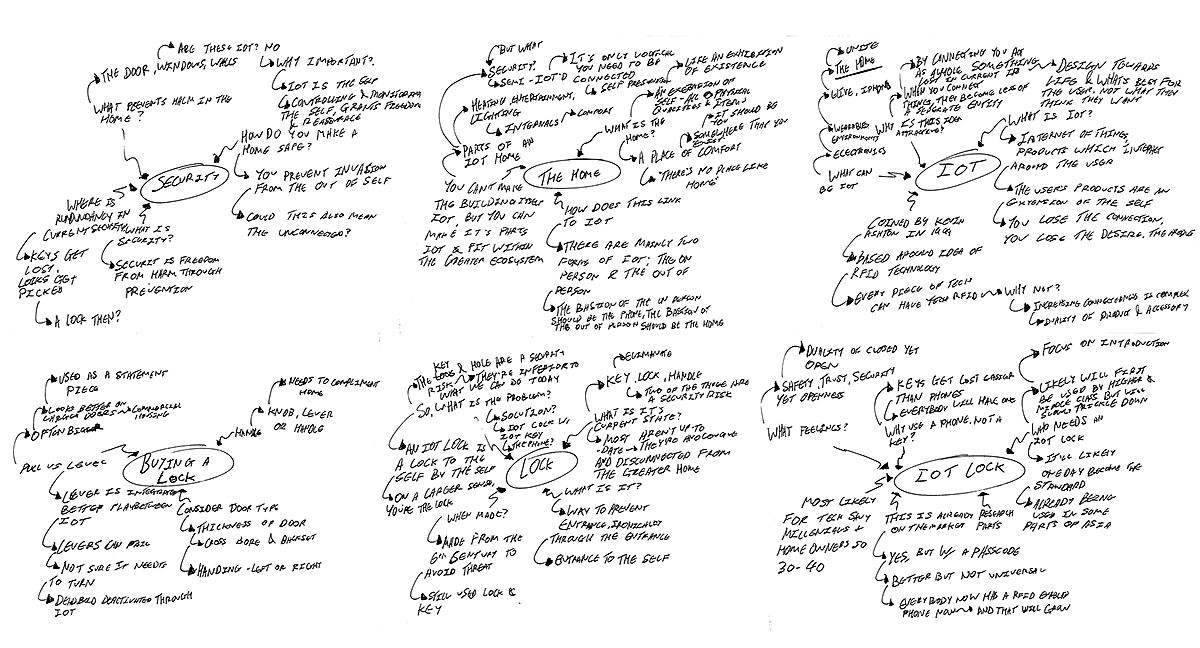 ARE THESE IOT? NO
THE DOOR, WINDOWS, WALLS
WHAT PREVENTS HARM IN THE
HOME?
WHY IMPORTANT?
IOT IS THE SELF
CONTROLLING & MONITORING
THE SELF, GRANTS FREEDOM
& REASSURANCE
HOW DO YOU MAKE A
HOME SAFE?
SECURITY
YOU PREVENT INVASION
FROM THE OUT OF SELF
COULD THIS ALSO MEAN
THE UNCONNECTED?
WHERE IS
REDUNDANCY IN
CURRENT SECURITY?
KEYS GET
LOST,
LOCKS GET
PICKED
A LOCK THEN?
WHAT IS
SECURITY?
SECURITY IS FREEDOM
FROM HARM THROUGH
PREVENTION
BUT WHAT
SECURITY?
SEMI-IOT'D
IT'S ONLY LOGICAL
YOU NEED TO BE
CONNECTED
HEATING, ENTERTAINMENT,
LIGHTING
INTERNALS
COMFORT
PARTS OF AN
IOT HOME
SELF PRESENTED
LIKE AN EXHIBITION
OF EXISTENCE
AN EXTENSION OF
SELF-ALL PHYSICAL
QUALITIES & ITEMS
WHAT IS THE
HOME?
IT SHOULD BE
YOU
SOMEWHERE THAT YOU
EXIST
A PLACE OF COMFORT
"THERE'S NO PLACE LIKE
HOME"
THE HOME
YOU CAN'T MAKE
THE BUILDING ITSELF
IOT, BUT YOU CAN
MAKE IT'S PARTS
IOT & FIT WITHIN
THE GREATER ECOSYSTEM
HOW DOES THIS LINK
TO IOT
THERE ARE MAINLY TWO
FORMS OF IOT; THE ON
PERSON & THE OUT OF
PERSON
THE BASTION OF THE IN PERSON
SHOULD BE THE PHONE, THE BASTION OF
THE OUT OF PERSON SHOULD BE THE HOME
UNITE
THE HOME
HIVE, IPHONE
WEARABLES
ENVIRONMENTS
ELECTRONICS
WHAT CAN
BE IOT
BY CONNECTING YOU ACT
AS A WHOLE SOMETHING
LOST IN CURRENT ID
WHEN YOU CONNECT
THINGS, THEY BECOME LESS OF
A SEPERATE ENTITY
WHY IS THIS IDEA
ATTRACTIVE?
DESIGN TOWARDS
LIFE & WHAT'S BEST FOR
THE USER, NOT WHAT THEY
THINK THEY WANT
WHAT IS IOT?
INTERNET OF THINGS,
PRODUCTS WHICH INTERACT
AROUND THE USER
IOT
THE USER'S PRODUCTS ARE AN
EXTENSION OF THE SELF
YOU LOSE THE CONNECTION,
YOU LOSE THE DESIRE, THE
COINED BY KEVIN
ASHTON IN 1999
BASED AROUND IDEA OF
RFID TECHNOLOGY
EVERY PIECE OF TECH
CAN HAVE YOUR RFID
WHY NOT?
INCREASING CONNECTEDNESS IS COMPLEX
DUALITY OF PRODUCT & ACCESSORY
USED AS A STATEMENT
PIECE
LOOKS BETTER ON
LARGER DOORS
COMMERCIAL
HOUSING
OFTEN BIGGER
PULL VS LEVEL
NEEDS TO COMPLIMENT
HOME
KNOB, LEVER
OR HANDLE
HANDLE
BUYING A
LOCK
LEVER IS INTEGRATED
BETTER FLAY BETWEEN
IOT
LEVERS CAN FAIL
NOT SURE IF NEEDS
TO TURN
DEADBOLD DEACTIVATED THROUGH
IOT
CONSIDER DOOR TYPE
THICKNESS OF DOOR
CROSS BORE & BACKSET
HANDING - LEFT OR RIGHT
KEY
THE & HOLE ARE A SECURITY
RISK
THEY'RE INFERIOR TO
WHAT WE CAN DO TODAY
SO, WHAT IS THE PROBLEM?
SOLUTION?
IOT LOCK W/
IOT KEY
THE PHONE?
AN IOT LOCK IS
A LOCK TO THE
SELF BY THE SELF
ON A LARGER SENSE,
YOU'RE THE LOCK
LOCK
WHEN MADE?
MADE FROM THE
6TH CENTURY TO
AVOID THREAT
STILL USED LOCK &
KEY
ELIMINATE
KEY, LOCK, HANDLE
TWO OF THE THREE ARE
A SECURITY RISK
WHAT IS IT'S
CURRENT STATE?
MOST AREN'T UP TO
-DATE
THEY'RE ANALOGUE
AND DISCONNECTED FROM
THE GREATER HOME
WHAT IS IT?
WAY TO PREVENT
ENTRANCE, IRONICALLY
THROUGH THE ENTRANCE
ENTRANCE TO THE SELF
DUALITY OF CLOSED YET
OPEN
SAFETY, TRUST, SECURITY
YET OPENNESS
WHAT FEELINGS?
KEYS GET LOST EASIER
THAN PHONES
EVERYBODY WILL HAVE ONE
WHY USE A PHONE, NOT A
KEY?
FOCUS ON INTRODUCTION
LIKELY WILL FIRST
BE USED BY HIGHER &
MIDDLE CLASS BUT WILL
SLOWLY TRICKLE DOWN
WHO NEEDS AN
IOT LOCK
IT'LL LIKELY
ONE DAY BECOME THE
STANDARD
ALREADY BEING
USED IN SOME
PARTS OF ASIA
IOT LOCK
MOST LIKELY
FOR TECH SAVY
MILLENIALS &
HOME OWNERS SO
30-40
THIS IS ALREADY
ON THE MARKET
RESEARCH
PARTS
YES, BUT W/ A PASSCODE
BETTER BUT NOT UNIVERSAL
EVERYBODY NOW HAS A RFID ENABLED
PHONE NOW
AND THAT WILL GROW